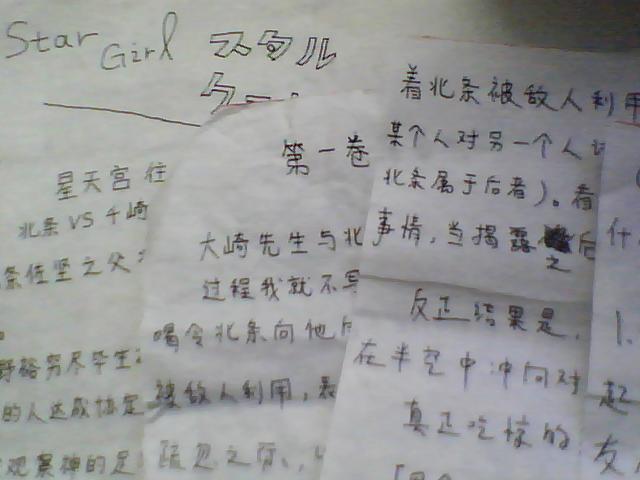 Star Girl スタル
ター
星天宫往
北条VS千崎
条佐坚之父
野裕穷尽毕生
的人达成协定
观察神的足
第一卷
大崎先生与北
过程我就不写
喝令北条向他
被敌人利用,
疏忽之际、
着北条被敌人利用
某个人对另一个人
北条属于后者)。看
事情,当揭露之后
反正结果是,
在半空中冲向对
真正吃惊的
什
1.
起
友